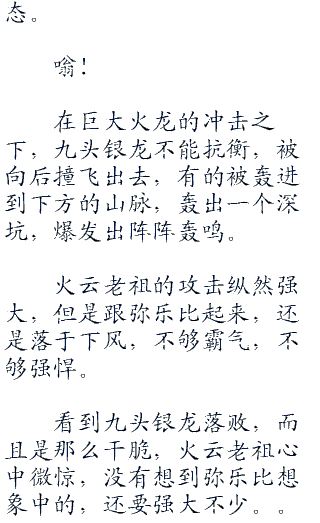 态。
嗡！
在巨大火龙的冲击之
下，九头银龙不能抗衡，被
向后撞飞出去，有的被轰进
到下方的山脉，轰出一个深
坑，爆发出阵阵轰鸣。
火云老祖的攻击纵然强
大，但是跟弥乐比起来，还
是落于下风，不够霸气，不
够强悍。
看到九头银龙落败，而
且是那么干脆，火云老祖心
中微惊，没有想到弥乐比想
象中的，还要强大不少。。